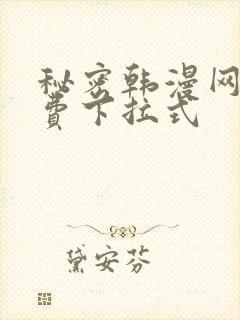 秘密韩漫网
费下拉式
黛安芬